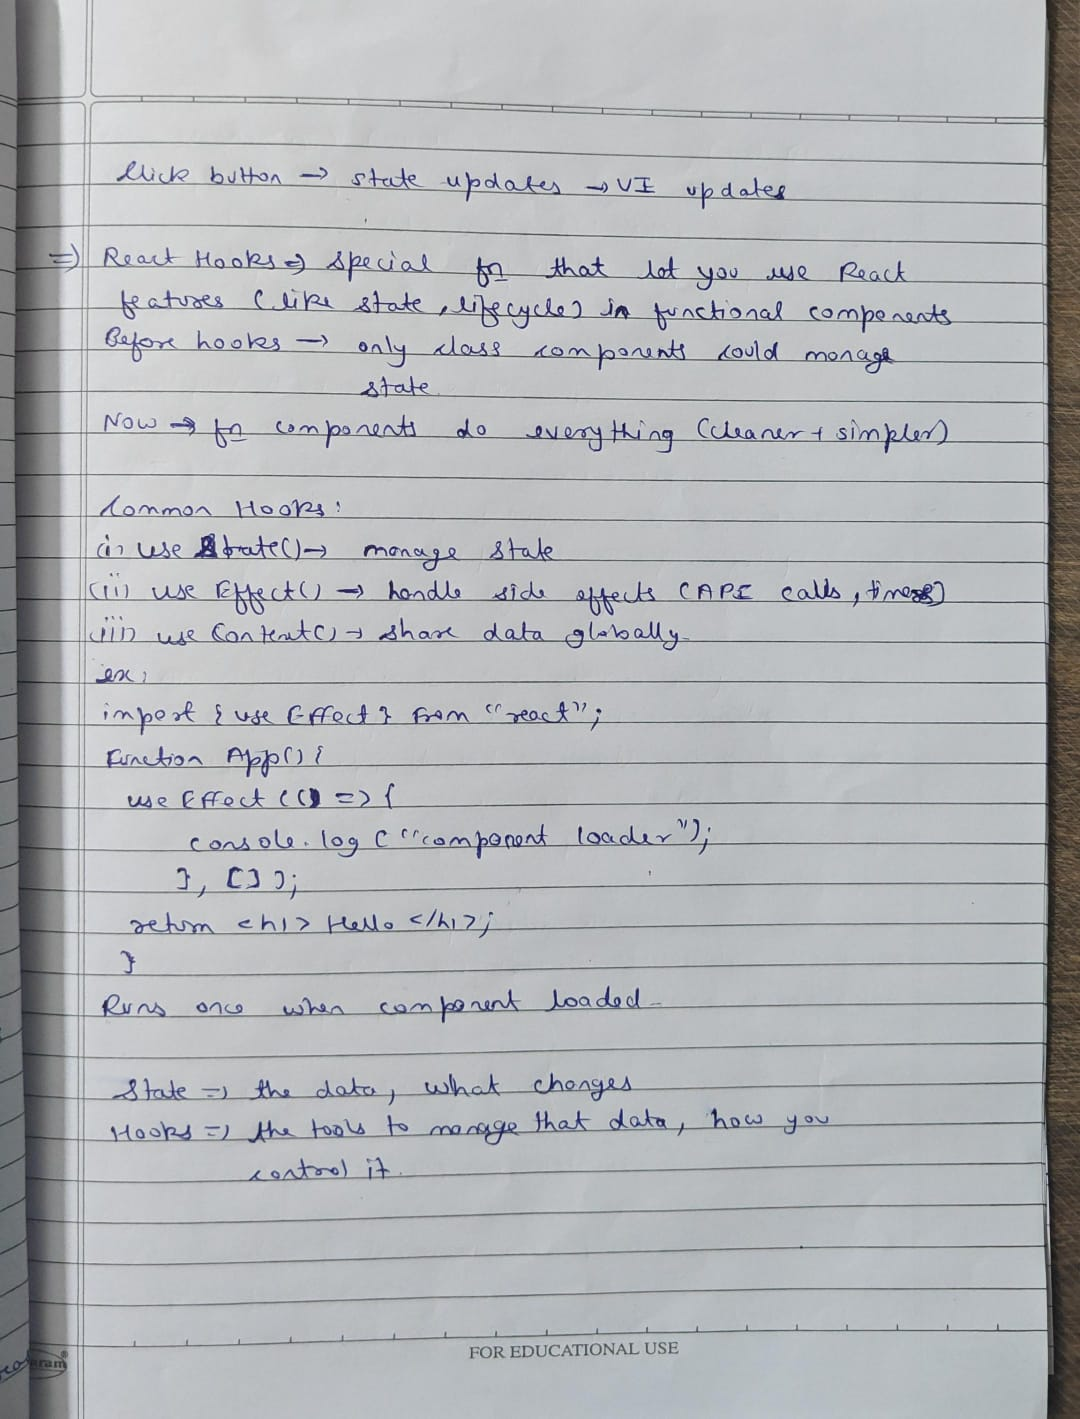 Click button → state updates → UI updates
⇒ React Hooks ⇒ special fn that let you use React
features (like state, lifecycle) in functional components
Before hooks → only class components could manage
state.
Now → fn components do everything (cleaner + simpler)
Common Hooks:
(i) useState() → manage state
(ii) useEffect() → handle side effects (API calls, timers)
(iii) useContext() → share data globally.
ex:
import { useEffect } from "react";
Function App() {
useEffect (() => {
console.log ("component loader");
}, []);
return <h1> Hello </h1>;
}
Runs once when component loaded.
State ⇒ the data, what changes
Hooks ⇒ the tools to manage that data, how you
control it.
FOR EDUCATIONAL USE